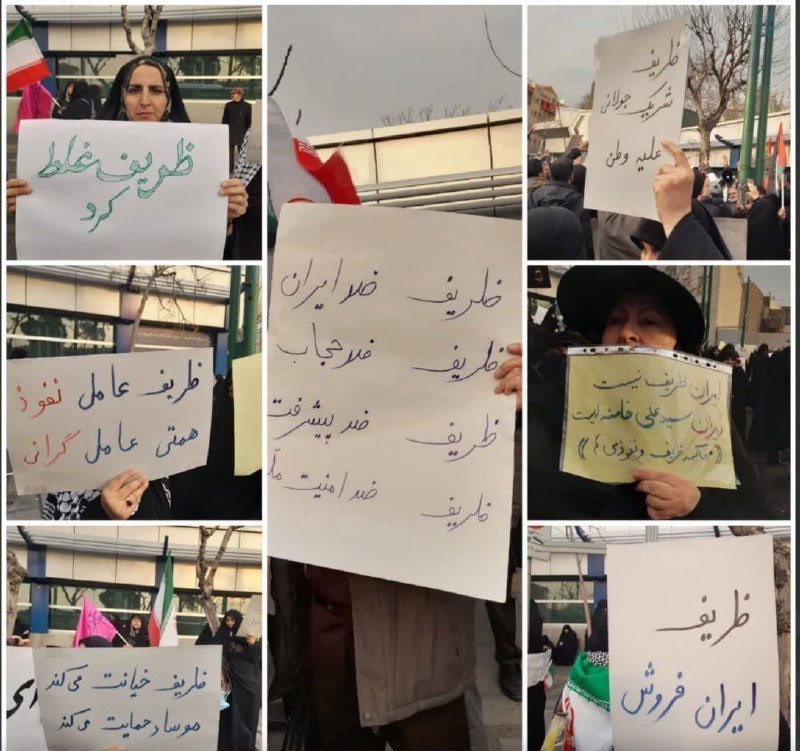 ظریف غلط
کرد
ظریف
شریک جولانی
علیه وطن
ظریف ضد ایران
ظریف ضد حجاب
ظریف ضد پیشرفت
ظریف ضد امنیت
ظریف عامل نفوذ
همتی عامل گرانی
ایران ظریف نیست
ایران سید علی خامنه ای است
ظریف خیانت می‌کند
موساد حمایت می‌کند
ظریف
ایران فروش